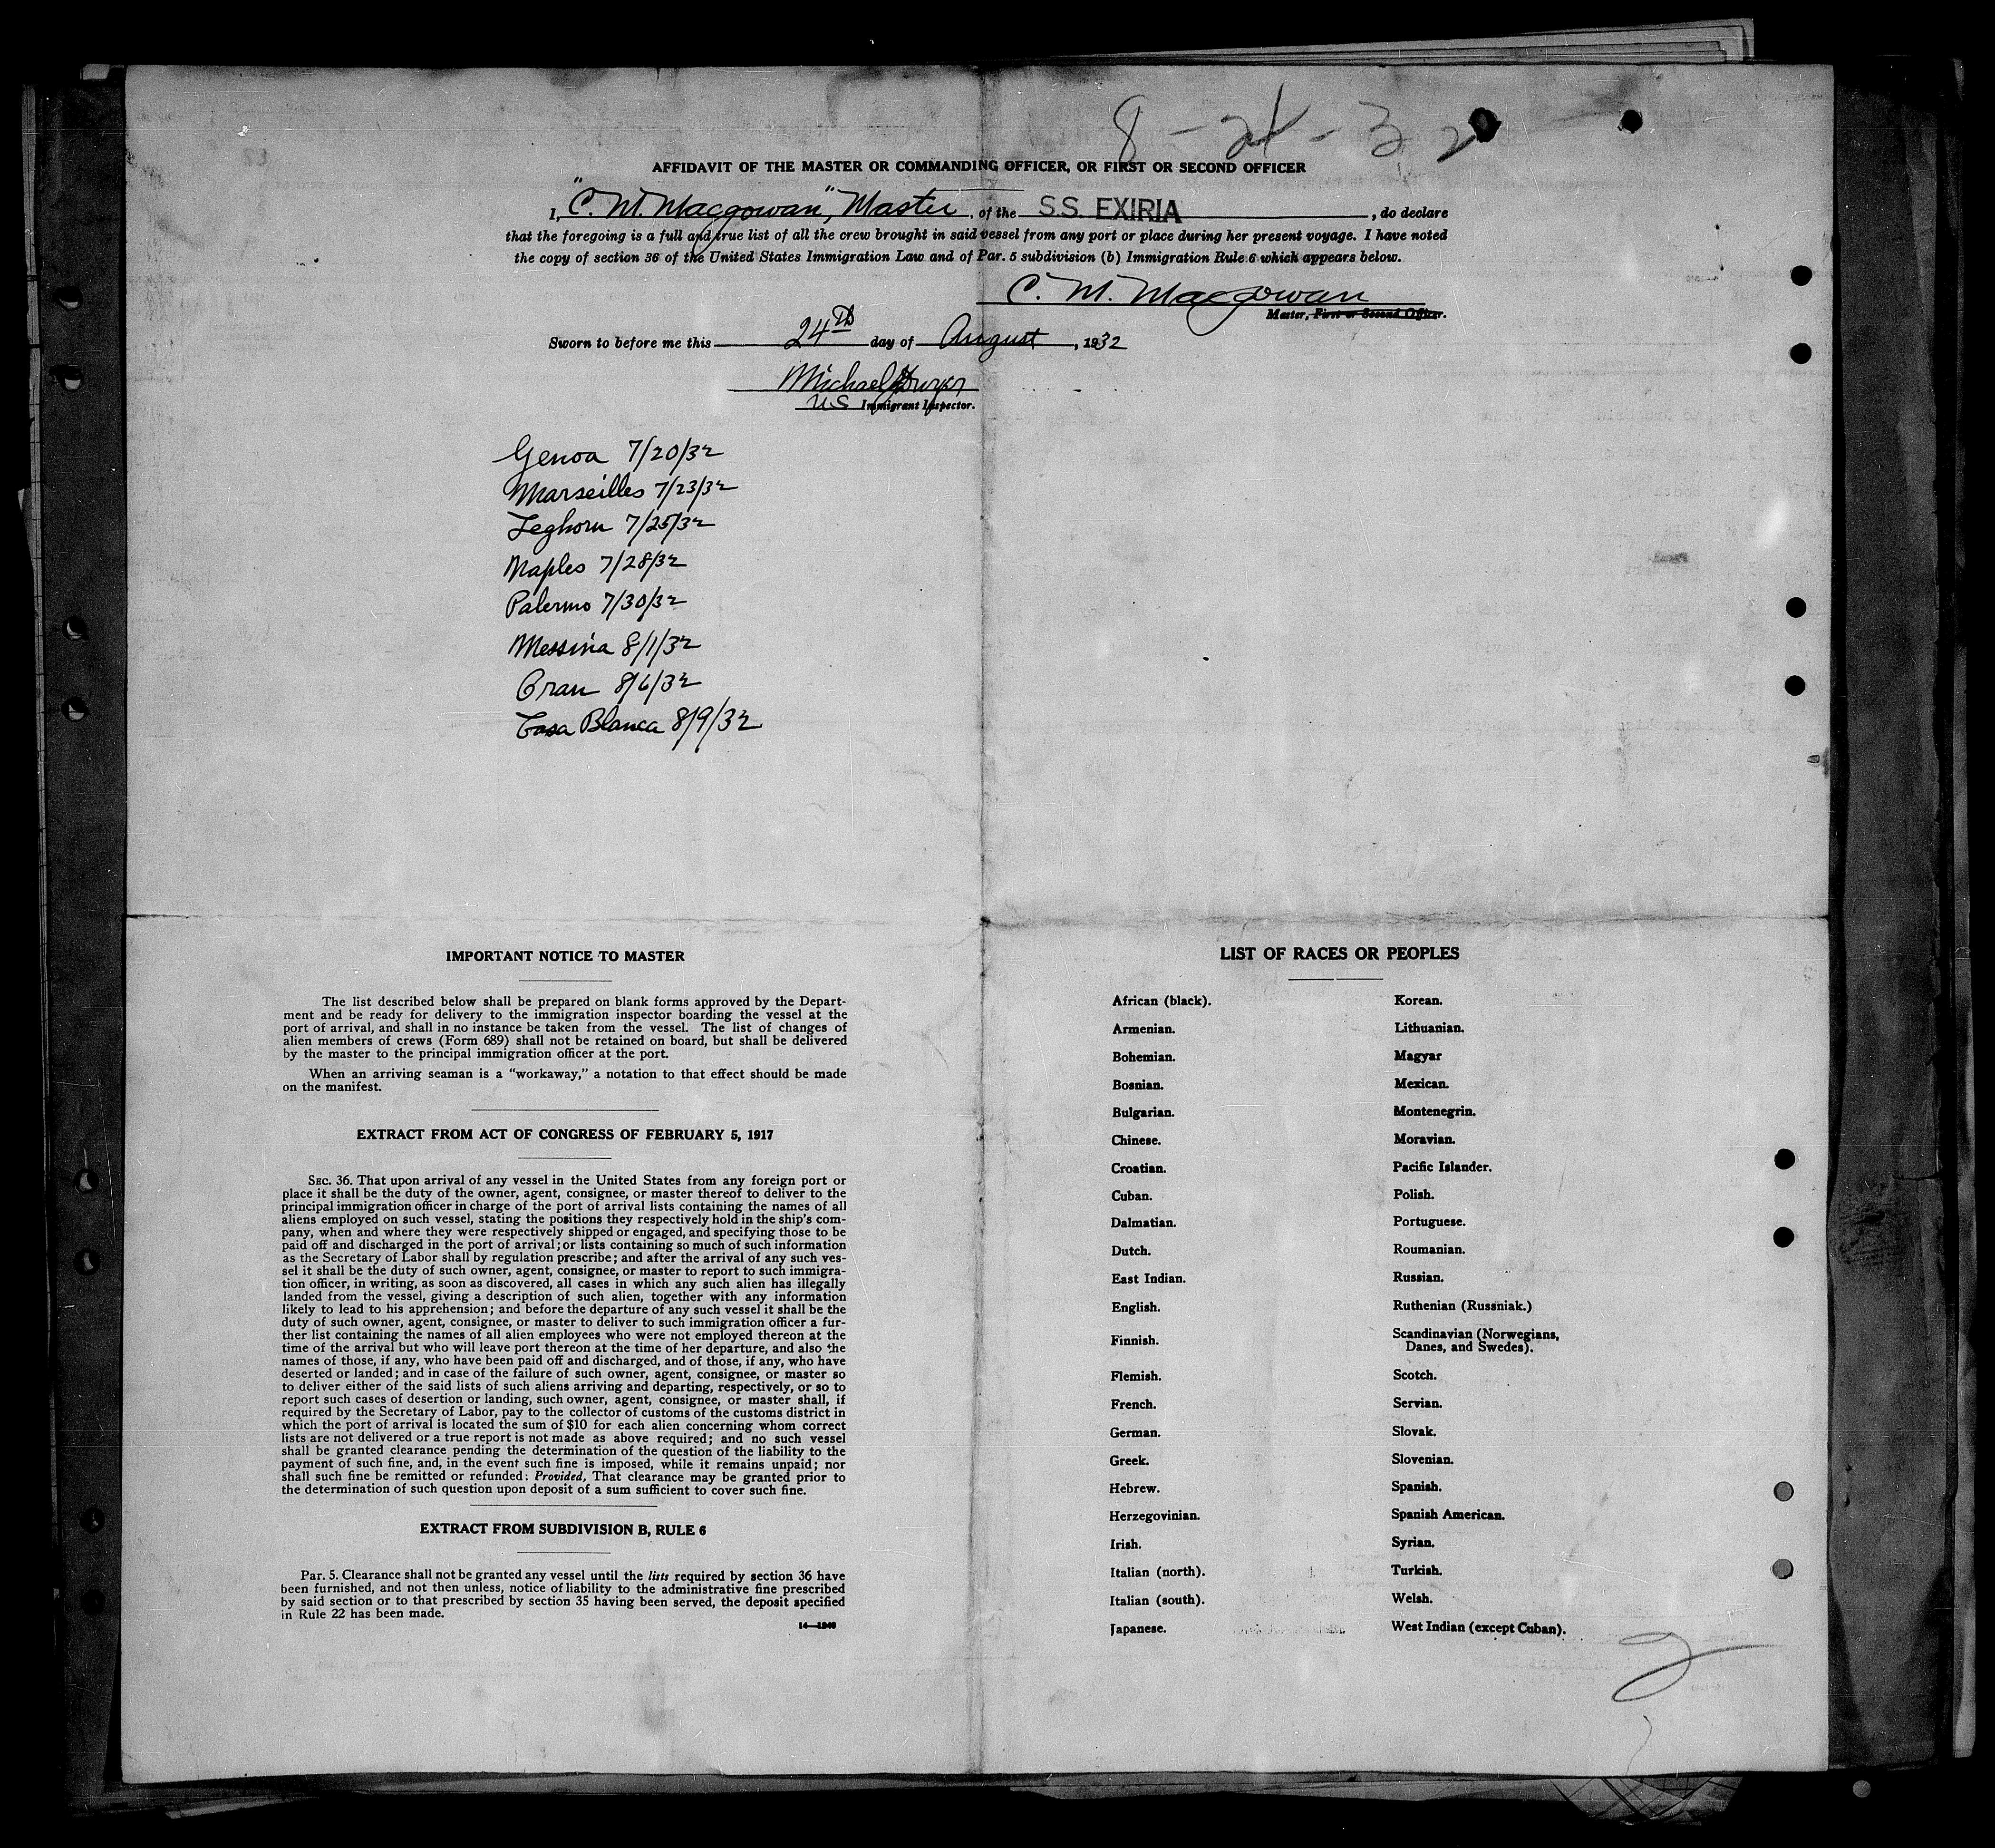 8-24-32
AFFIDAVIT OF THE MASTER OR COMMANDING OFFICER, OR FIRST OR SECOND OFFICER
I, "C. M. Macgowan", Master, of the S.S. EXIRIA, do declare
that the foregoing is a full and true list of all the crew brought in said vessel from any port or place during her present voyage. I have noted
the copy of section 36 of the United States Immigration Law and of Par. 5 subdivision (b) Immigration Rule 6 which appears below.
C. M. Macgowan
Master, First or Second Officer.
Sworn to before me this 24th day of August, 1932
Michael
US Immigrant Inspector.
Genoa 7/20/32
Marseilles 7/23/32
Leghorn 7/25/32
Naples 7/28/32
Palermo 7/30/32
Messina 8/1/32
Oran 8/6/32
Casa Blanca 8/9/32
IMPORTANT NOTICE TO MASTER
The list described below shall be prepared on blank forms approved by the Depart-
ment and be ready for delivery to the immigration inspector boarding the vessel at the
port of arrival, and shall in no instance be taken from the vessel. The list of changes of
alien members of crews (Form 689) shall not be retained on board, but shall be delivered
by the master to the principal immigration officer at the port.
When an arriving seaman is a "workaway," a notation to that effect should be made
on the manifest.
EXTRACT FROM ACT OF CONGRESS OF FEBRUARY 5, 1917
SEC. 36. That upon arrival of any vessel in the United States from any foreign port or
place it shall be the duty of the owner, agent, consignee, or master thereof to deliver to the
principal immigration officer in charge of the port of arrival lists containing the names of all
aliens employed on such vessel, stating the positions they respectively hold in the ship's com-
pany, when and where they were respectively shipped or engaged, and specifying those to be
paid off and discharged in the port of arrival; or lists containing so much of such information
as the Secretary of Labor shall by regulation prescribe; and after the arrival of any such ves-
sel it shall be the duty of such owner, agent, consignee, or master to report to such immigra-
tion officer, in writing, as soon as discovered, all cases in which any such alien has illegally
landed from the vessel, giving a description of such alien, together with any information
likely to lead to his apprehension; and before the departure of any such vessel it shall be the
duty of such owner, agent, consignee, or master to deliver to such immigration officer a fur-
ther list containing the names of all alien employees who were not employed thereon at the
time of the arrival but who will leave port thereon at the time of her departure, and also the
names of those, if any, who have been paid off and discharged, and of those, if any, who have
deserted or landed; and in case of the failure of such owner, agent, consignee, or master so
to deliver either of the said lists of such aliens arriving and departing, respectively, or so to
report such cases of desertion or landing, such owner, agent, consignee, or master shall, if
required by the Secretary of Labor, pay to the collector of customs of the customs district in
which the port of arrival is located the sum of $10 for each alien concerning whom correct
lists are not delivered or a true report is not made as above required; and no such vessel
shall be granted clearance pending the determination of the question of the liability to the
payment of such fine, and, in the event such fine is imposed, while it remains unpaid; nor
shall such fine be remitted or refunded: Provided, That clearance may be granted prior to
the determination of such question upon deposit of a sum sufficient to cover such fine.
EXTRACT FROM SUBDIVISION B, RULE 6
Par. 5. Clearance shall not be granted any vessel until the lists required by section 36 have
been furnished, and not then unless, notice of liability to the administrative fine prescribed
by said section or to that prescribed by section 35 having been served, the deposit specified
in Rule 22 has been made.
LIST OF RACES OR PEOPLES
African (black).
Armenian.
Bohemian.
Bosnian.
Bulgarian.
Chinese.
Croatian.
Cuban.
Dalmatian.
Dutch.
East Indian.
English.
Finnish.
Flemish.
French.
German.
Greek.
Hebrew.
Herzegovinian.
Irish.
Italian (north).
Italian (south).
Japanese.
Korean.
Lithuanian.
Magyar
Mexican.
Montenegrin.
Moravian.
Pacific Islander.
Polish.
Portuguese.
Roumanian.
Russian.
Ruthenian (Russniak.)
Scandinavian (Norwegians,
Danes, and Swedes).
Scotch.
Servian.
Slovak.
Slovenian.
Spanish.
Spanish American.
Syrian.
Turkish.
Welsh.
West Indian (except Cuban).
2